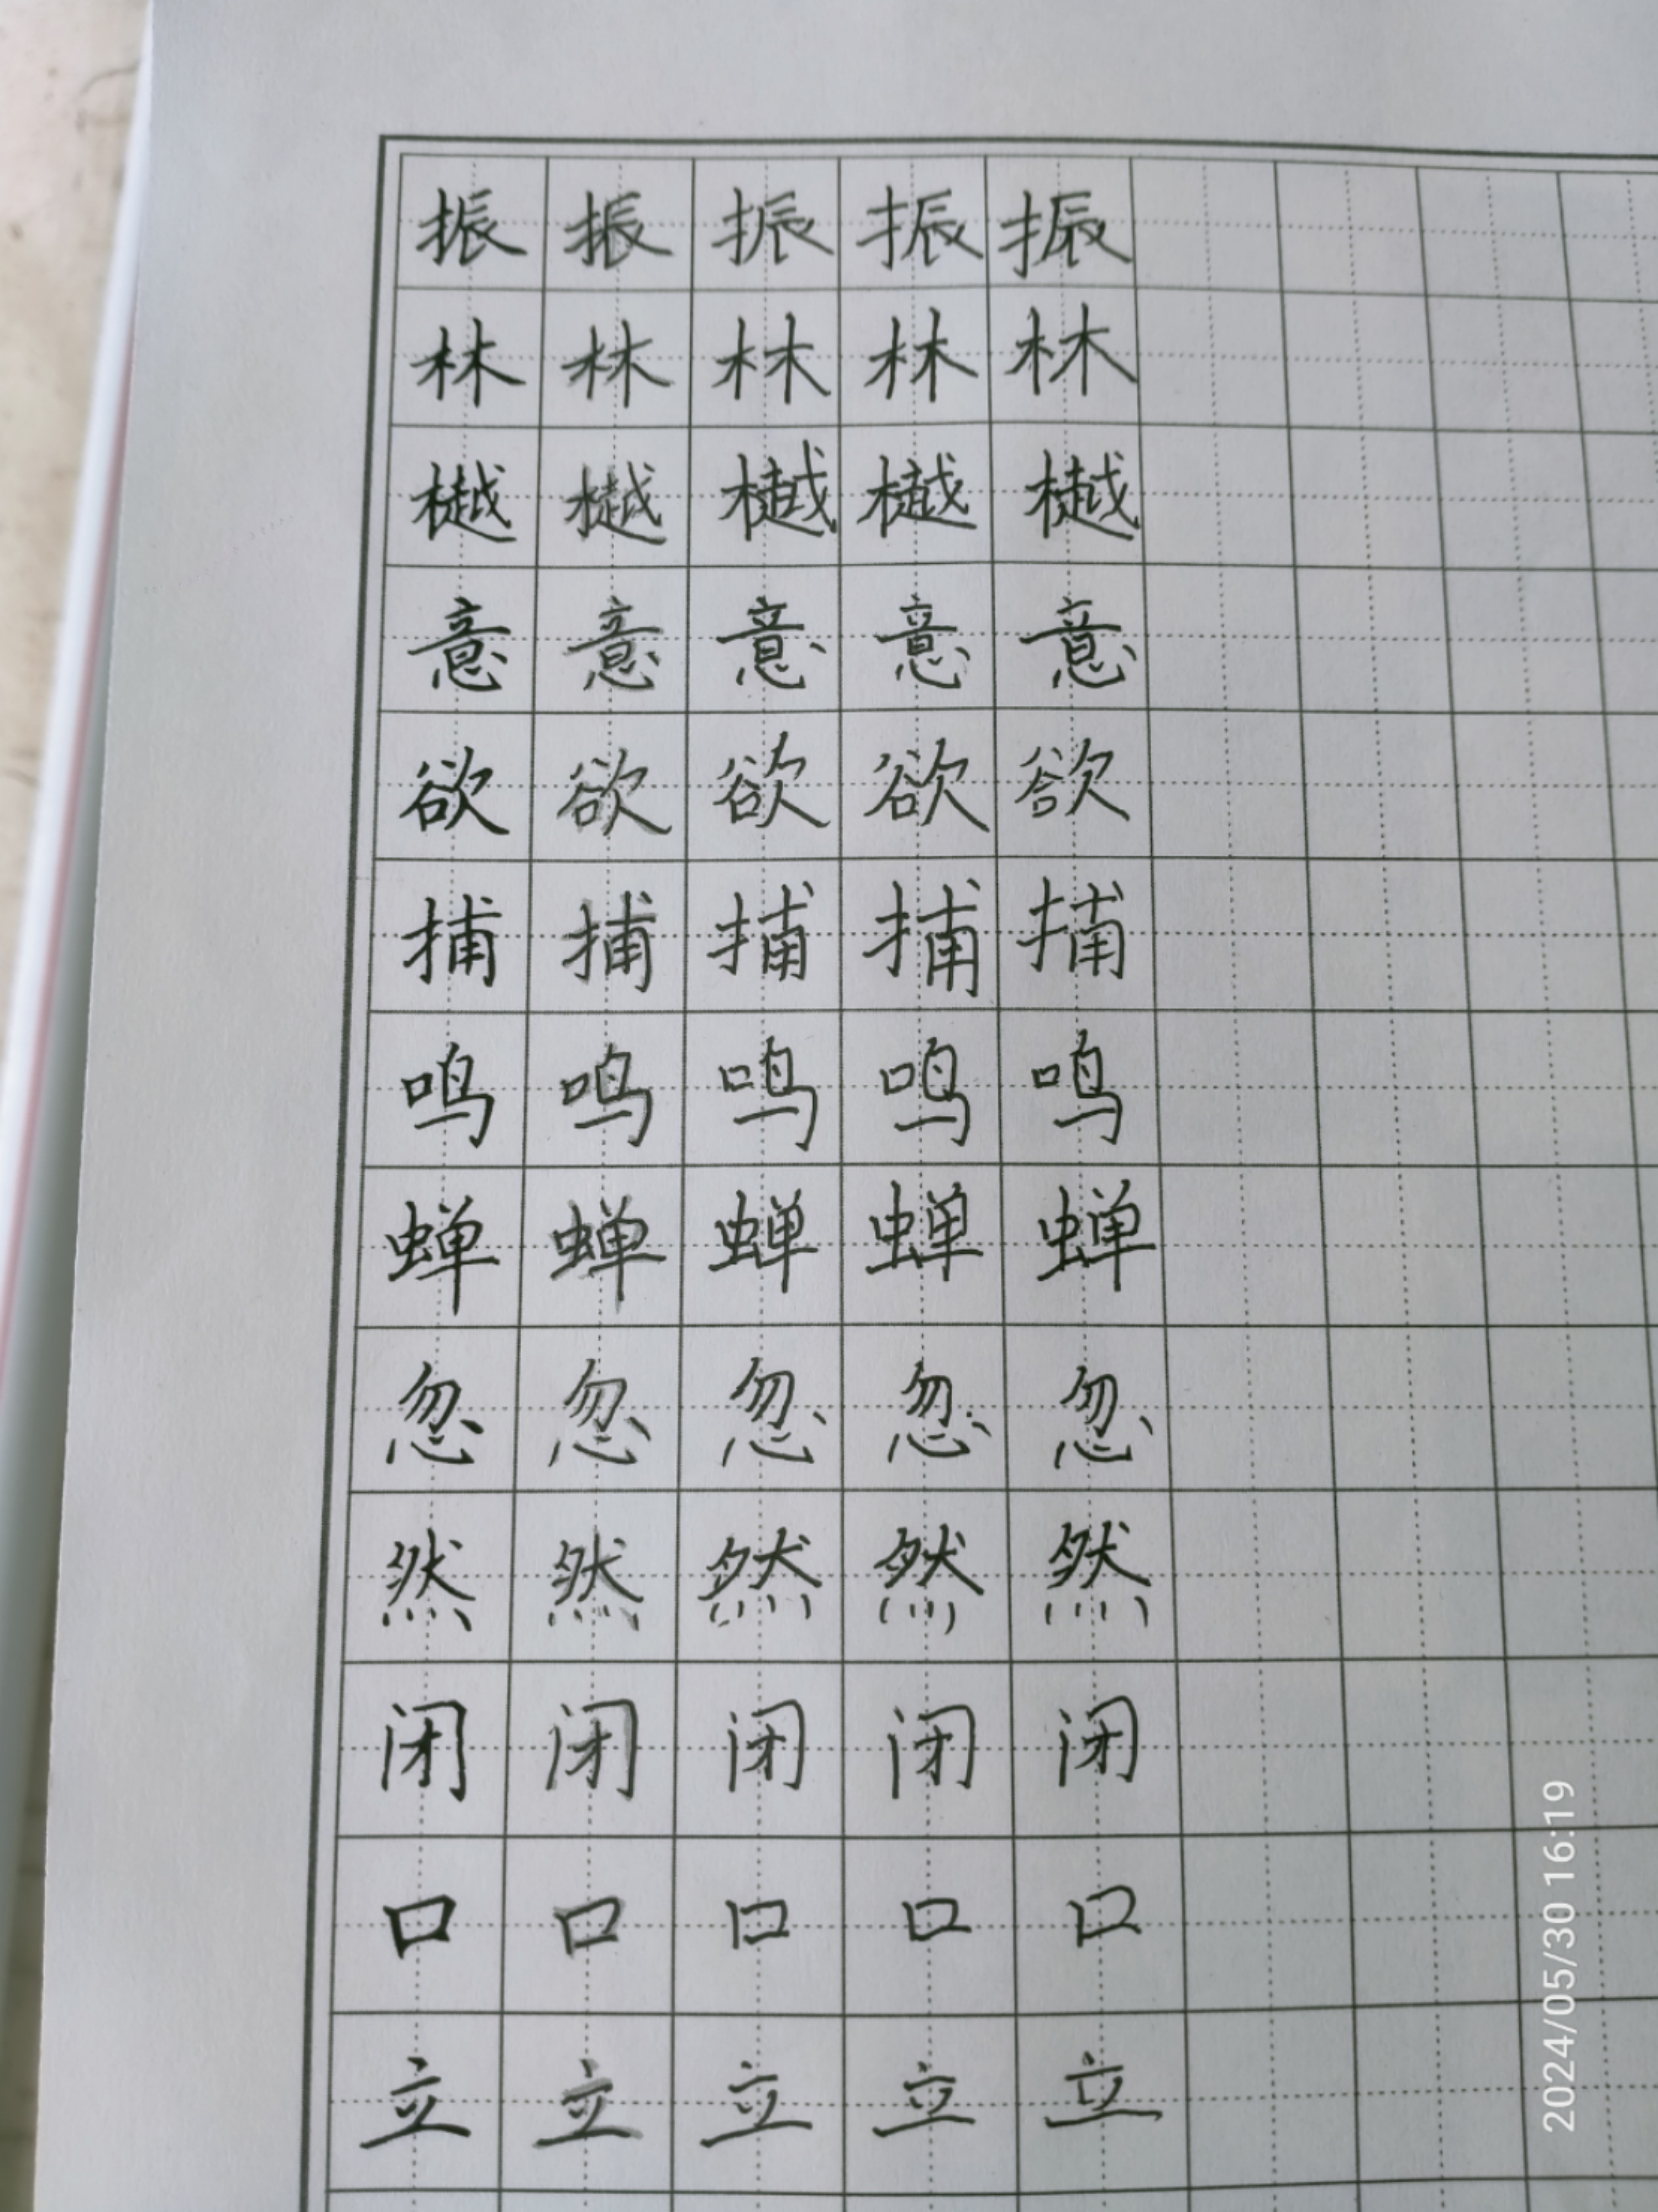 振振振振振
林林林林林
樾樾樾樾樾
意意意意意
欲欲欲欲欲
捕捕捕捕捕
鸣鸣鸣鸣鸣
蝉蝉蝉蝉蝉
忽忽忽忽忽
然然然然然
闭闭闭闭闭
口口口口口
立立立立立
2024/05/30 16:19